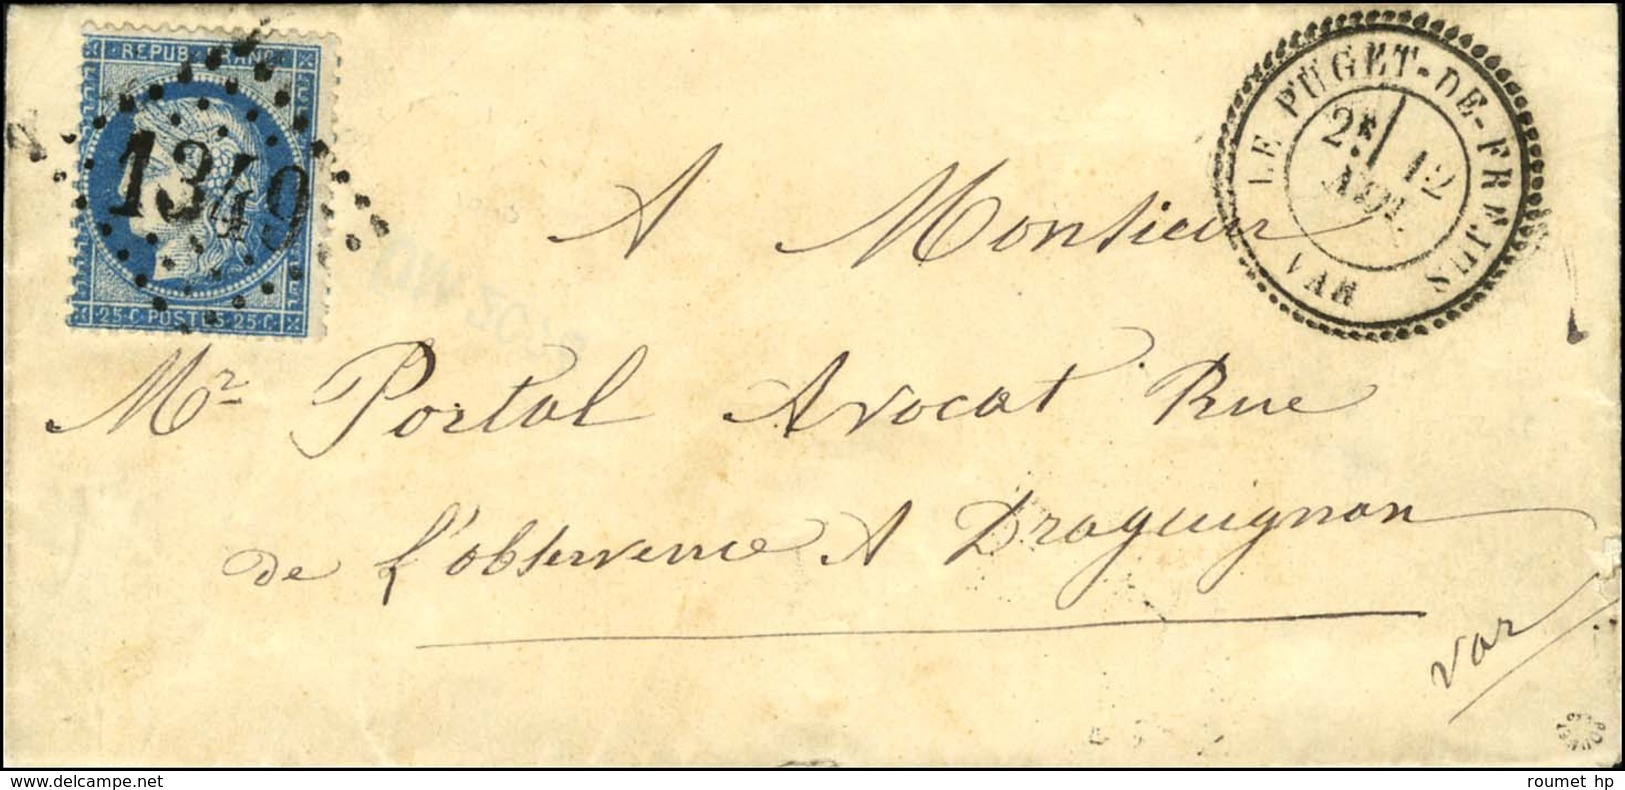 REPUB · FRANC
1349
25·C POSTES 25·C
LE PUGET-DE-FREJUS
2E
12
VAR
A Monsieur
Mr Portal Avocat Rue
de l'observence A Draguignan
Var
roumet hp